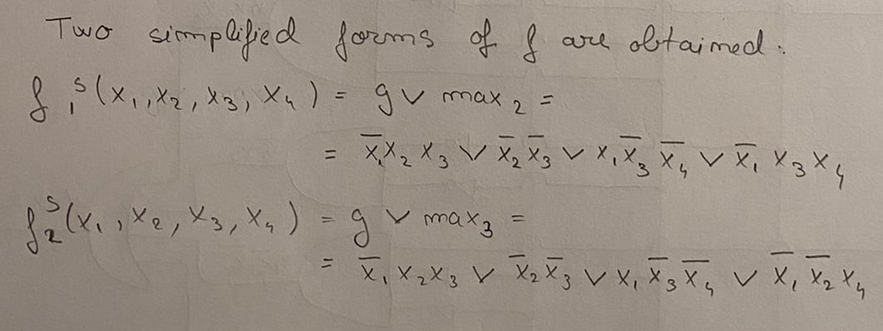 Two simplified forms of f are obtained:
f₁ˢ(x₁, x₂, x₃, x₄) = g ∨ max₂ =
= x̅₁x₂x₃ ∨ x̅₂x̅₃ ∨ x₁x̅₃x̅₄ ∨ x̅₁x₃x₄
f₂ˢ(x₁, x₂, x₃, x₄) = g ∨ max₃ =
= x̅₁x₂x₃ ∨ x̅₂x̅₃ ∨ x₁x̅₃x̅₄ ∨ x̅₁x̅₂x₄